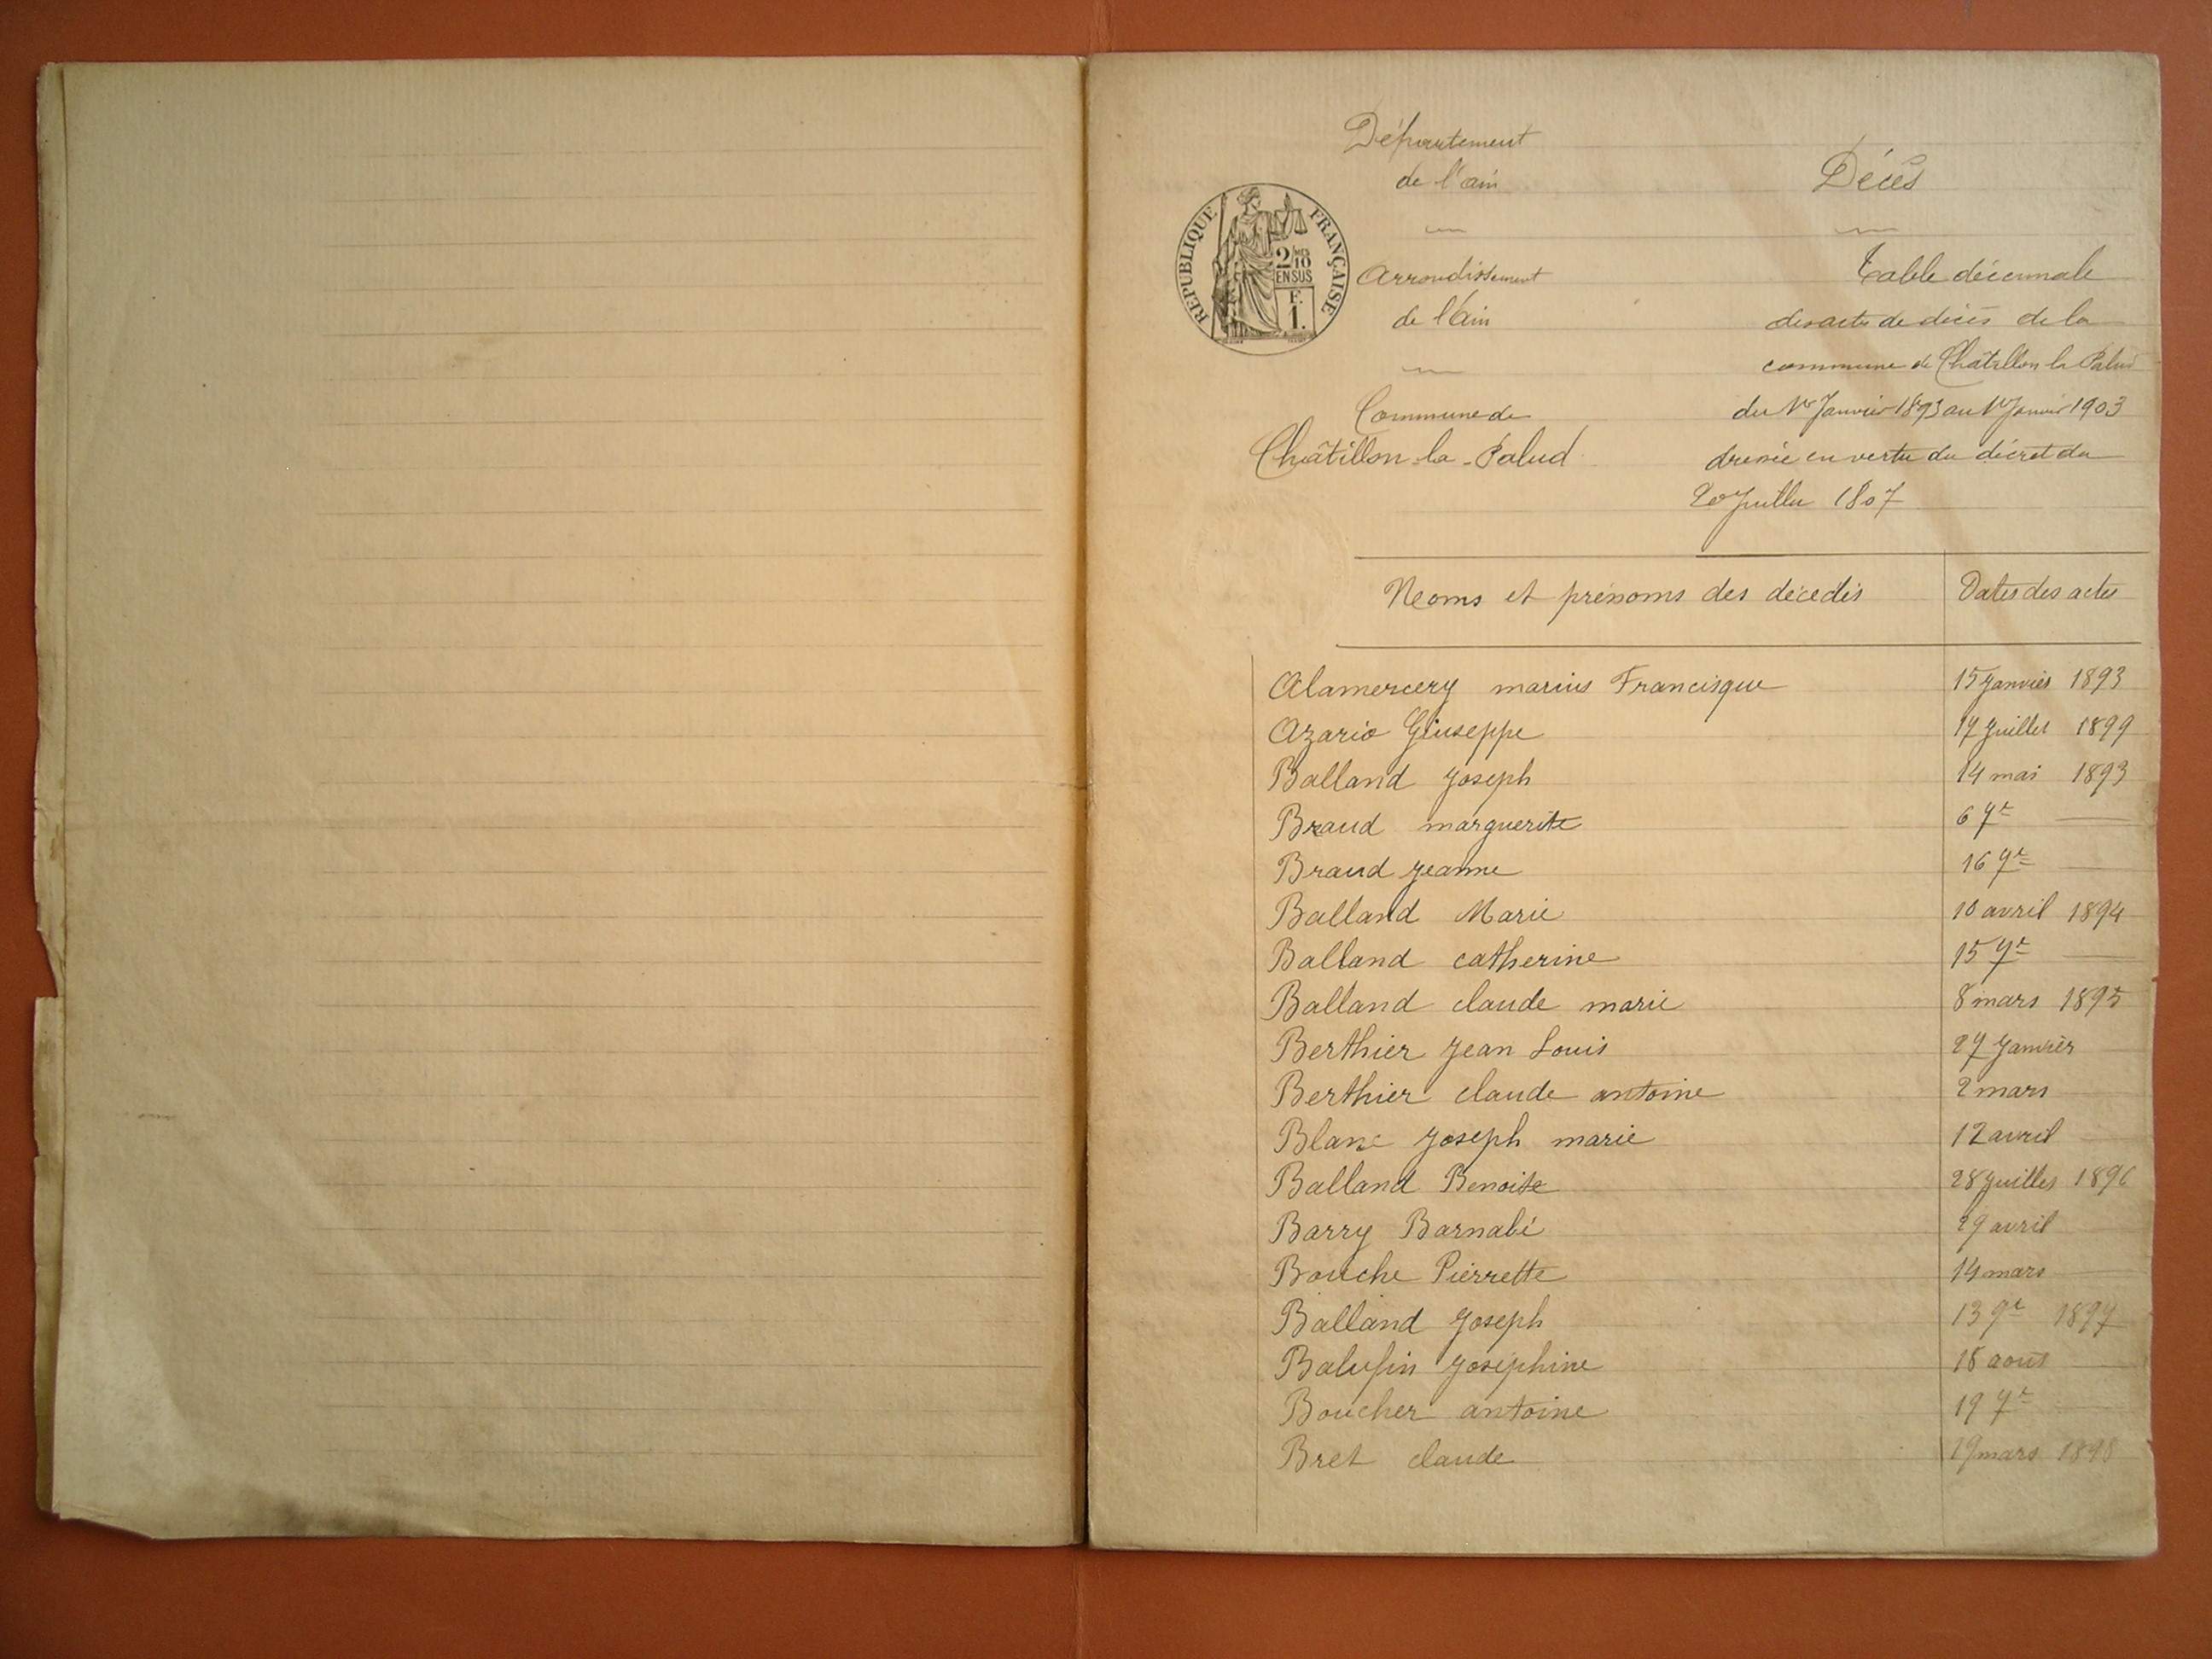 Département
de l'ain
Décès
REPUBLIQUE FRANÇAISE
2/10
EN SUS
F.
1.
Arrondissement
de l'Ain
Table décennale
des actes de décès de la
commune de Châtillon la Palud
Commune de
du 1er Janvier 1893 au 1er Janvier 1903
Châtillon-la-Palud
dressée en vertu du décret du
20 Juillet 1807
Noms et prénoms des décédés
Dates des actes
Alamercery marius Francisque 15 Janvier 1893
Azario Giuseppe 17 Juillet 1899
Balland Joseph 14 mai 1893
Braud marguerite 6 7re —
Braud Jeanne 16 9re —
Balland Marie 10 avril 1894
Balland catherine 15 9re —
Balland claude marie 8 mars 1895
Berthier Jean Louis 27 Janvier
Berthier claude antoine 2 mars
Blanc Joseph marie 12 avril —
Balland Benoite 28 Juillet 1896
Barry Barnabé 29 avril
Bouche Pierrette 14 mars
Balland Joseph 13 9re 1897
Balufin Joséphine 18 aout —
Boucher antoine 19 7re
Bret claude 19 mars 1898